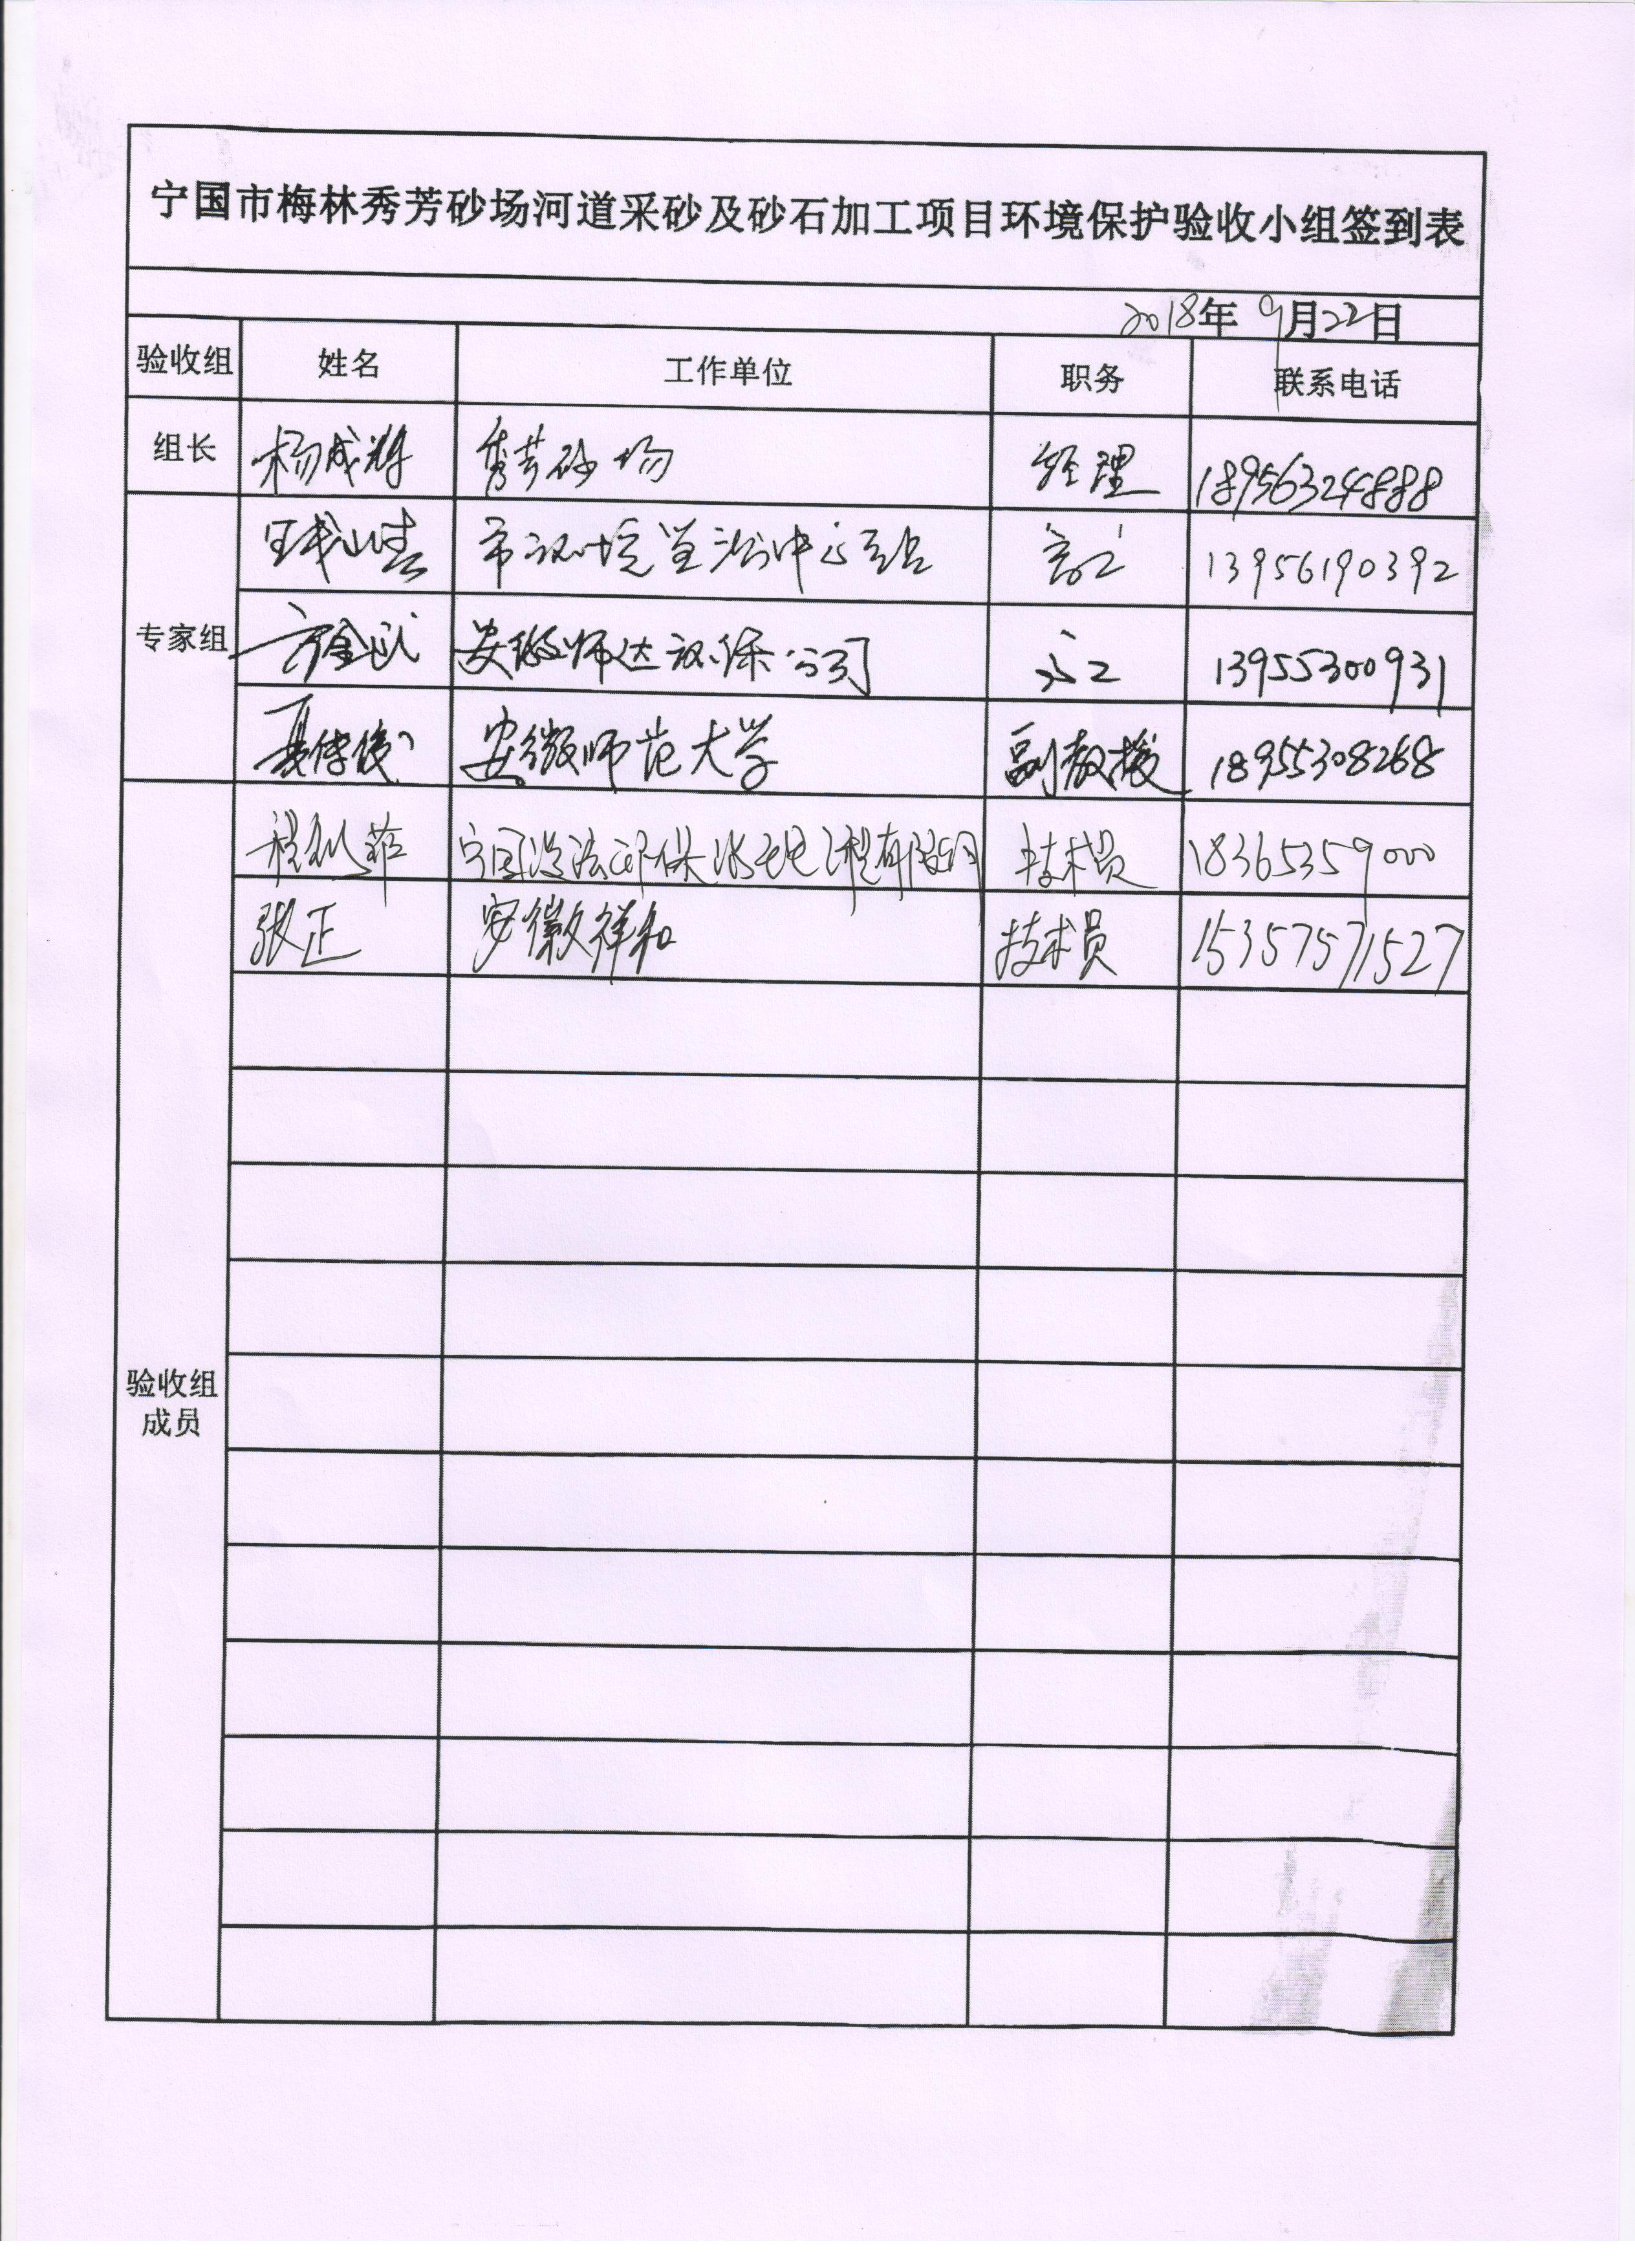 宁国市梅林秀芳砂场河道采砂及砂石加工项目环境保护验收小组签到表
2018年 9月22日
验收组 姓名 工作单位 职务 联系电话
组长 杨成辉 秀芳砂场 经理 18956324888
市环境监测中心站 高工 13956190392
专家组 方金武 师达环保公司 高工 13955300931
聂传俊 安徽师范大学 副教授 18955308268
宁国 环保 工程有限公司 技术员 18365359000
张正 安徽祥和 技术员 15357571527
验收组
成员